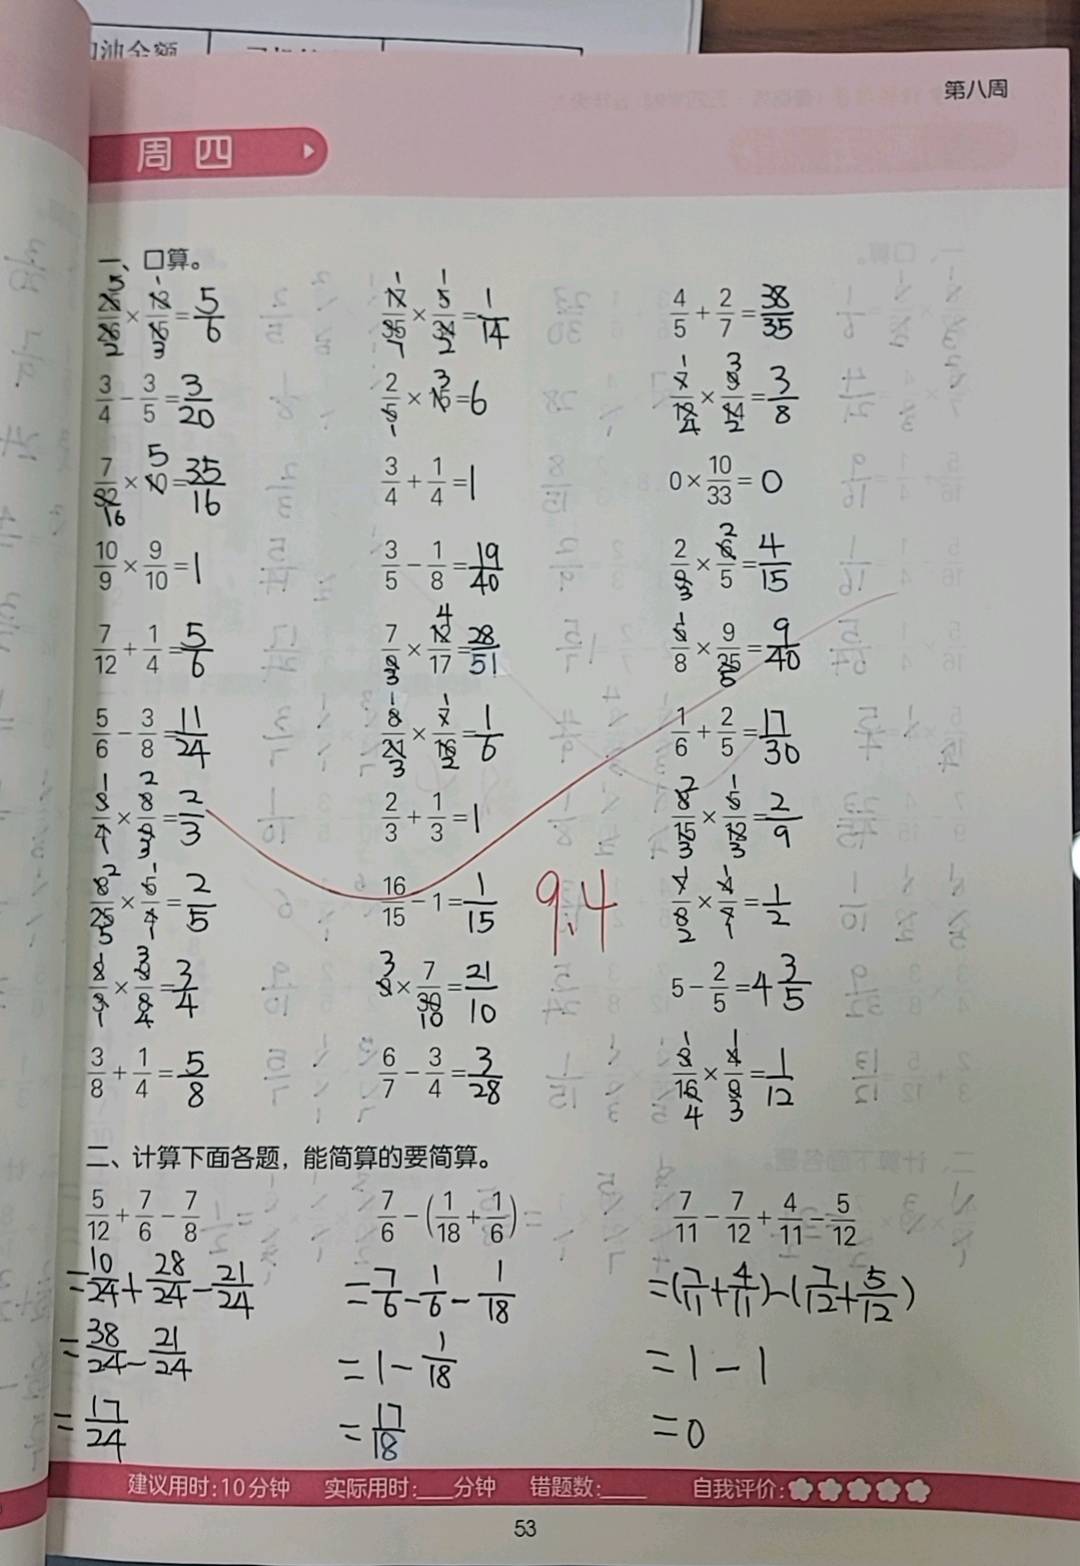 第八周
周四
一、口算。
25/26 × 13/15 = 5/6  17/35 × 5/34 = 1/14  4/5 + 2/7 = 38/35
3/4 − 3/5 = 3/20  2/5 × 15 = 6  7/12 × 9/14 = 3/8
7/32 × 10 = 35/16  3/4 + 1/4 = 1  0 × 10/33 = 0
10/9 × 9/10 = 1  3/5 − 1/8 = 19/40  2/9 × 6/5 = 4/15
7/12 + 1/4 = 5/6  7/9 × 12/17 = 28/51  5/8 × 9/25 = 9/40
5/6 − 3/8 = 11/24  8/21 × 7/16 = 1/6  1/6 + 2/5 = 17/30
3/4 × 8/9 = 2/3  2/3 + 1/3 = 1  8/15 × 5/12 = 2/9
8/25 × 5/4 = 2/5  16/15 − 1 = 1/15  7/8 × 4/7 = 1/2
× 9/8 = 3/4  9 × 7/30 = 21/10  5 − 2/5 = 4 3/5
3/8 + 1/4 = 5/8  6/7 − 3/4 = 3/28  3/16 × 4/9 = 1/12
9.4
二、计算下面各题，能简算的要简算。
5/12 + 7/6 − 7/8  7/6 − (1/18 + 1/6) =  7/11 − 7/12 + 4/11 − 5/12
= 10/24 + 28/24 − 21/24  = 7/6 − 1/6 − 1/18  = (7/11 + 4/11) − (7/12 + 5/12)
= 38/24 − 21/24  = 1 − 1/18  = 1 − 1
= 17/24  = 17/18  = 0
建议用时：10分钟 实际用时：___分钟 错题数：____ 自我评价：
53